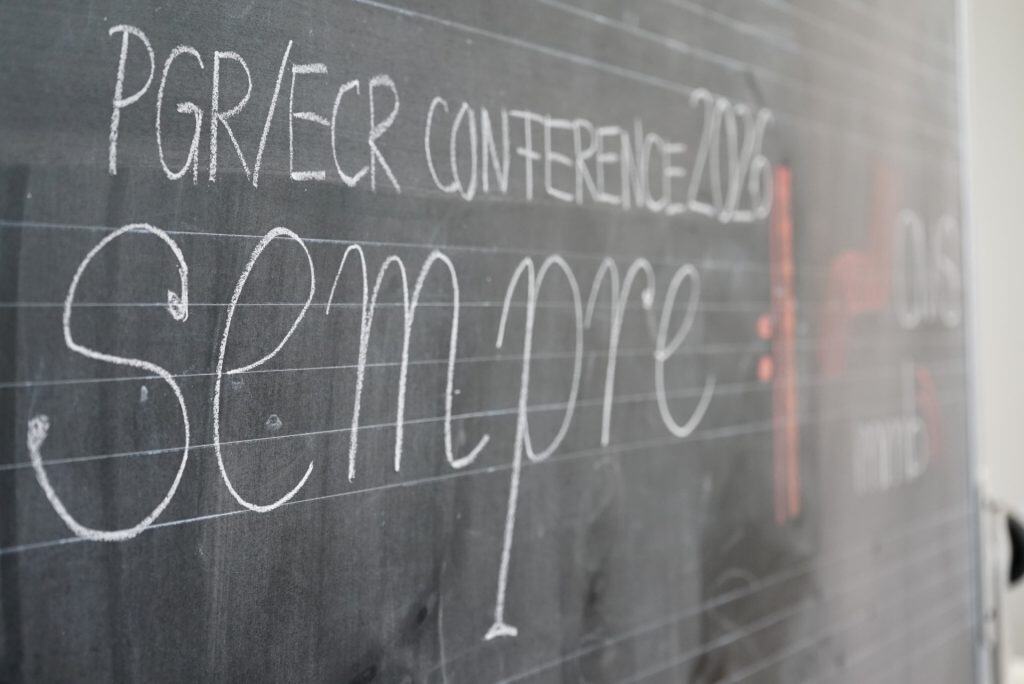 PGR/ECR CONFERENCE 2026
sempre